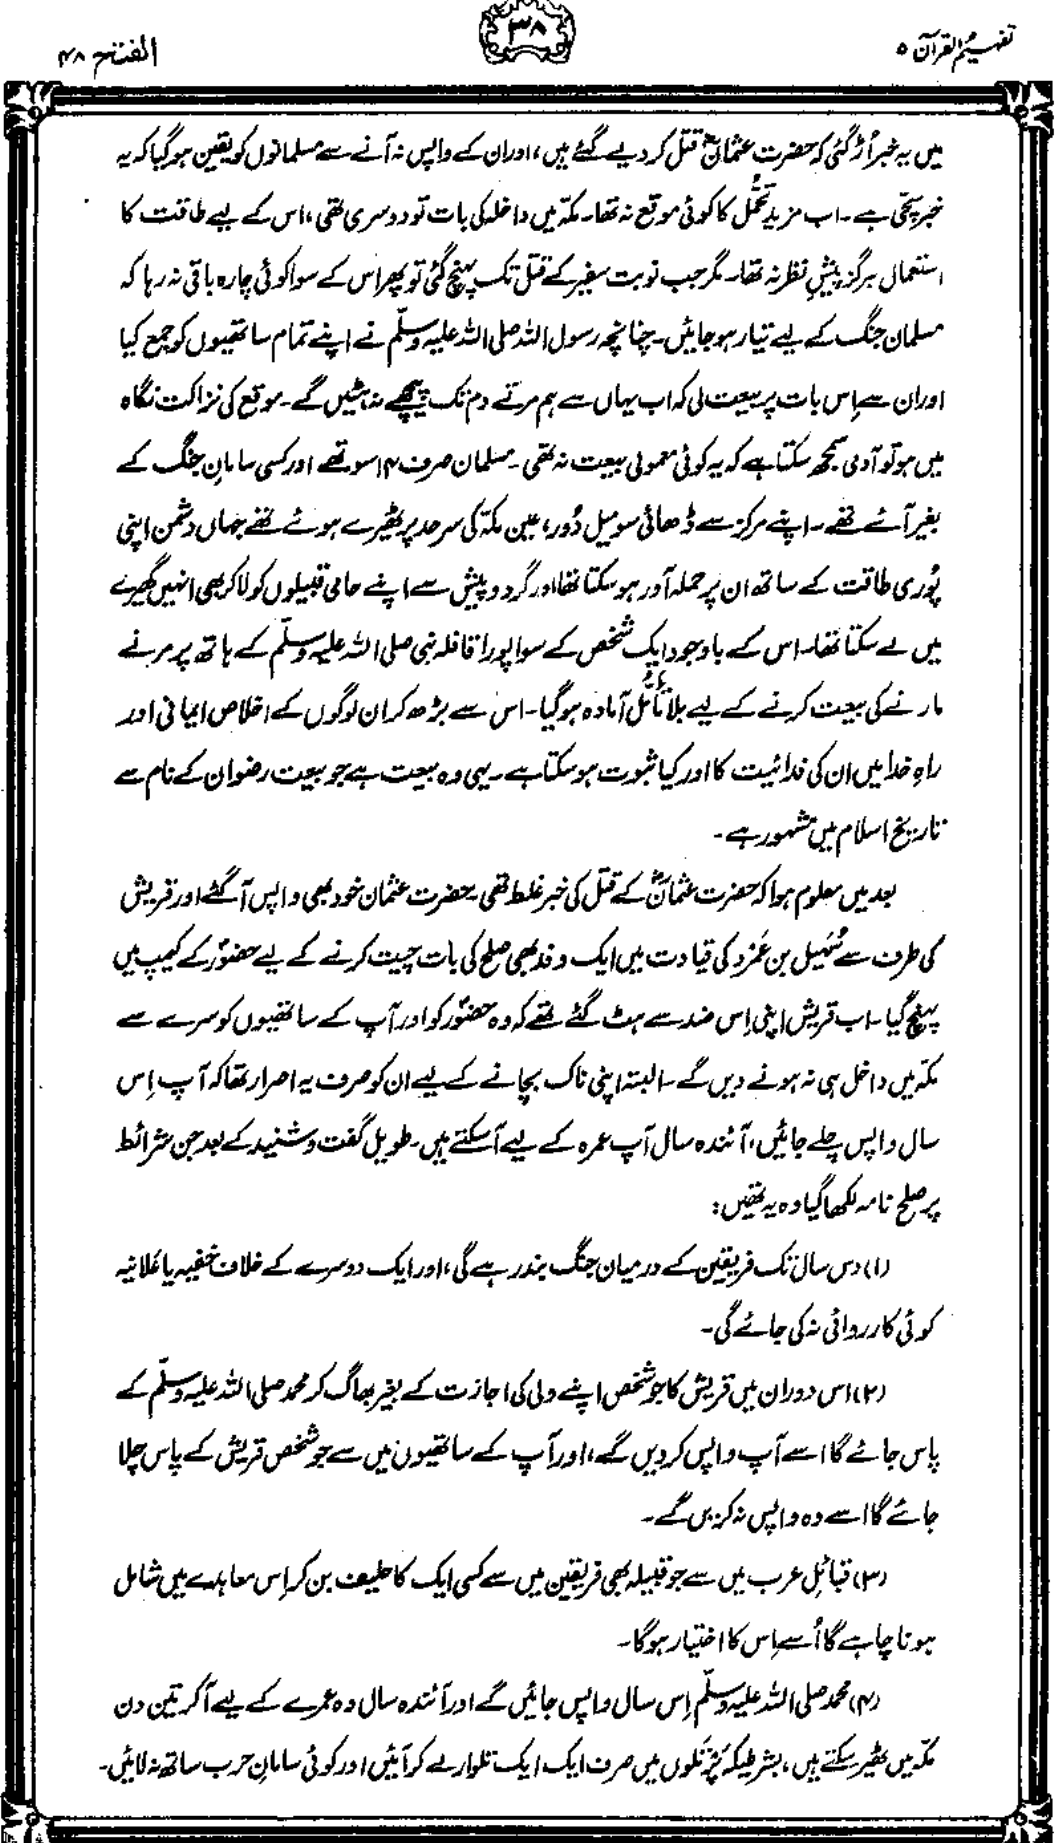 تفہیم القرآن ۵
۳۸
الفتح ۴۸
میں یہ خبر اُڑ گئی کہ حضرت عثمانؓ قتل کر دیے گئے ہیں، اور ان کے واپس نہ آنے سے مسلمانوں کو یقین ہو گیا کہ یہ
خبر سچّی ہے۔ اب مزید تحمُّل کا کوئی موقع نہ تھا۔ مکہّ میں داخلہ کی بات تو دوسری تھی، اس کے لیے طاقت کا
استعمال ہرگز پیشِ نظر نہ تھا۔ مگر جب نوبت سفیر کے قتل تک پہنچ گئی تو پھر اس کے سوا کوئی چارہ باقی نہ رہا کہ
مسلمان جنگ کے لیے تیار ہو جائیں۔ چنانچہ رسول اللہ صلی اللہ علیہ وسلّم نے اپنے تمام ساتھیوں کو جمع کیا
اور ان سے اِس بات پر بیعت لی کہ اب یہاں سے ہم مرتے دم تک پیچھے نہ ہٹیں گے۔ موقع کی نزاکت نگاہ
میں ہو تو آدمی سمجھ سکتا ہے کہ یہ کوئی معمولی بیعت نہ تھی۔ مسلمان صرف ۱۴ سو تھے اور کسی سامانِ جنگ کے
بغیر آئے تھے۔ اپنے مرکز سے ڈھائی سو میل دُور، عین مکہّ کی سرحد پر ٹھیرے ہوئے تھے جہاں دشمن اپنی
پُوری طاقت کے ساتھ ان پر حملہ آور ہو سکتا تھا اور گرد و پیش سے اپنے حامی قبیلوں کو لا کر بھی انہیں گھیرے
میں لے سکتا تھا۔ اس کے باوجود ایک شخص کے سوا پورا قافلہ نبی صلی اللہ علیہ وسلّم کے ہاتھ پر مرنے
مارنے کی بیعت کرنے کے لیے بلا تأمُّل آمادہ ہو گیا۔ اس سے بڑھ کر ان لوگوں کے اخلاص ایمانی اور
راہِ خدا میں ان کی فدائیت کا اور کیا ثبوت ہو سکتا ہے۔ یہی وہ بیعت ہے جو بیعت رضوان کے نام سے
تاریخ اسلام میں مشہور ہے۔
بعد میں معلوم ہوا کہ حضرت عثمانؓ کے قتل کی خبر غلط تھی۔ حضرت عثمان خود بھی واپس آ گئے اور قریش
کی طرف سے سُہَیل بن عَمْرو کی قیادت میں ایک وفد بھی صلح کی بات چیت کرنے کے لیے حضورؐ کے کیمپ میں
پہنچ گیا۔ اب قریش اپنی اِس ضد سے ہٹ گئے تھے کہ وہ حضورؐ کو اور آپ کے ساتھیوں کو سرے سے
مکہّ میں داخل ہی نہ ہونے دیں گے۔ البتہ اپنی ناک بچانے کے لیے ان کو صرف یہ اصرار تھا کہ آپ اِس
سال واپس چلے جائیں، آئندہ سال آپ عمرہ کے لیے آ سکتے ہیں۔ طویل گفت و شنید کے بعد جن شرائط
پر صلح نامہ لکھا گیا وہ یہ تھیں:
(۱) دس سال تک فریقین کے درمیان جنگ بند رہے گی، اور ایک دوسرے کے خلاف خفیہ یا عَلانیہ
کوئی کارروائی نہ کی جائے گی۔
(۲) اس دوران میں قریش کا جو شخص اپنے ولی کی اجازت کے بغیر بھاگ کر محمد صلی اللہ علیہ وسلّم کے
پاس جائے گا اسے آپ واپس کر دیں گے، اور آپ کے ساتھیوں میں سے جو شخص قریش کے پاس چلا
جائے گا اسے وہ واپس نہ کریں گے۔
(۳) قبائلِ عرب میں سے جو قبیلہ بھی فریقین میں سے کسی ایک کا حلیف بن کر اِس معاہدے میں شامل
ہونا چاہے گا اُسے اِس کا اختیار ہوگا۔
(۴) محمد صلی اللہ علیہ وسلّم اِس سال واپس جائیں گے اور آئندہ سال وہ عمرے کے لیے آ کر تین دن
مکہّ میں ٹھیر سکتے ہیں، بشرطیکہ پَرْتَلوں میں صرف ایک ایک تلوار لے کر آئیں اور کوئی سامانِ حرب ساتھ نہ لائیں۔